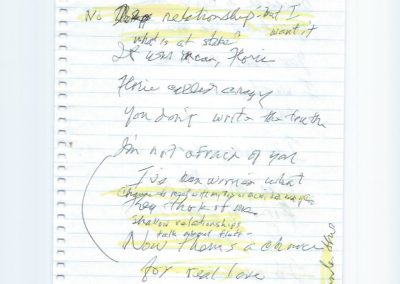 No relationship - but I
want it
what is at stake?
It was mean, Florie
Florie called crazy
You don't write the truth
I'm not afraid of you
I've been worried what
they think of me
shallow relationships
talk about fluff -
Now there's a chance
for real love